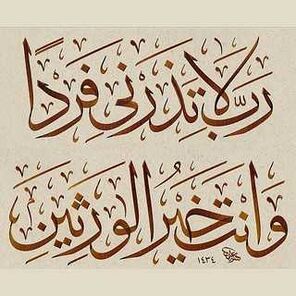 رَبِّ لَا تَذَرْنِي فَرْدًا
وَأَنتَ خَيْرُ الْوَارِثِينَ
١٤٣٤